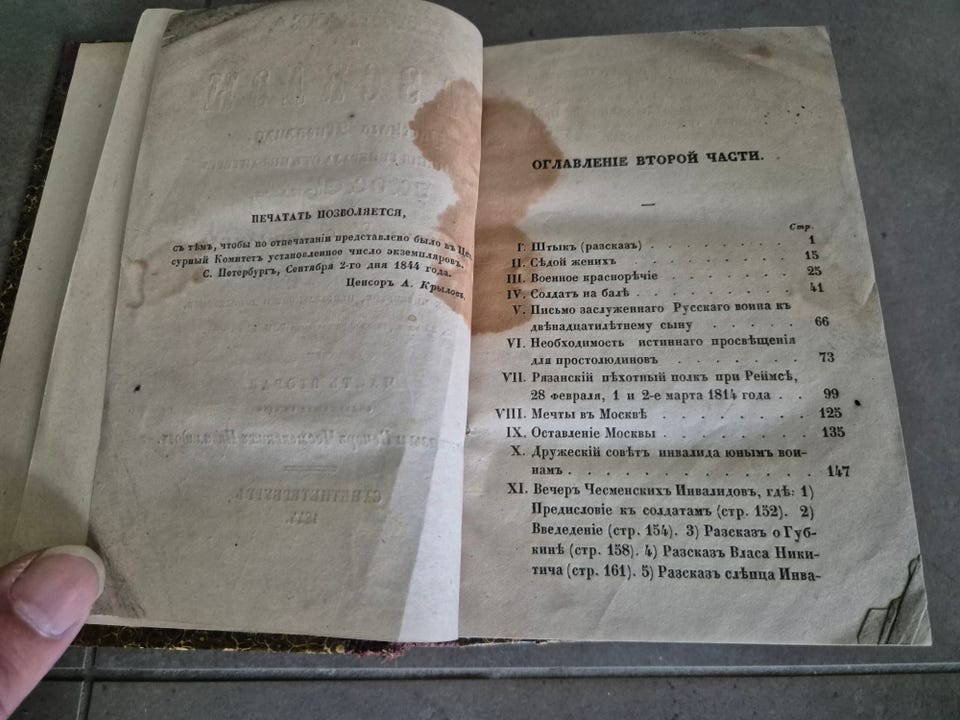 ПЕЧАТАТЬ ПОЗВОЛЯЕТСЯ,
съ тѣмъ, чтобы по отпечатаніи представлено было въ Цен-
сурный Комитетъ установленное число экземпляровъ.
С. Петербургъ, Сентября 2-го дня 1844 года.
Ценсоръ А. Крыловъ.
ОГЛАВЛЕНІЕ ВТОРОЙ ЧАСТИ.
Стр.
I. Штыкъ (разсказъ) . . . . . . . . 1
II. Сѣдой женихъ . . . . . . . . . 15
III. Военное краснорѣчіе . . . . . . . 25
IV. Солдатъ на балѣ . . . . . . . . . 41
V. Письмо заслуженнаго Русскаго воина къ
двѣнадцатилѣтнему сыну . . . . . 66
VI. Необходимость истиннаго просвѣщенія
для простолюдиновъ . . . . . . . 73
VII. Рязанскій пѣхотный полкъ при Реймсѣ,
28 февраля, 1 и 2-е марта 1814 года . . 99
VIII. Мечты въ Москвѣ . . . . . . . . 125
IX. Оставленіе Москвы . . . . . . . . 135
X. Дружескій совѣтъ инвалида юнымъ вои-
намъ . . . . . . . . . . . . . 147
XI. Вечеръ Чесменскихъ Инвалидовъ, гдѣ: 1)
Предисловіе къ солдатамъ (стр. 152). 2)
Введеденіе (стр. 154). 3) Разсказъ о Губ-
кинѣ (стр. 158). 4) Разсказъ Власа Ники-
тича (стр. 161). 5) Разсказъ слѣпца Инва-